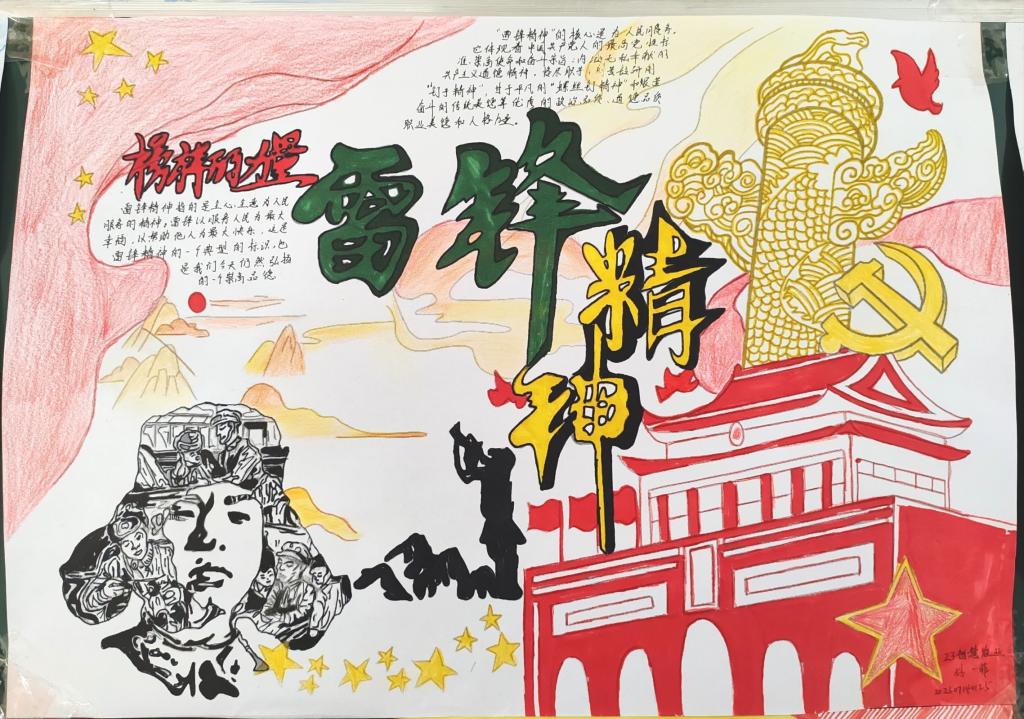 "雷锋精神"的核心是为人民服务，
它体现着中国共产党人的最高党性标
准、崇高使命和奋斗宗旨；
共产主义道德精神，恪尽职守，
"钉子精神"，甘于平凡的"螺丝钉精神"和艰苦
奋斗的传统美德等优良的政治品质、道德品质
职业美德和人格力量。
榜样的力量
雷锋精神指的是全心全意为人民
服务的精神。雷锋以服务人民为最大
幸福，以帮助他人为最大快乐，这是
雷锋精神的一个典型的标识，也
是我们今天仍然弘扬
的一个崇高品德
雷锋
精神